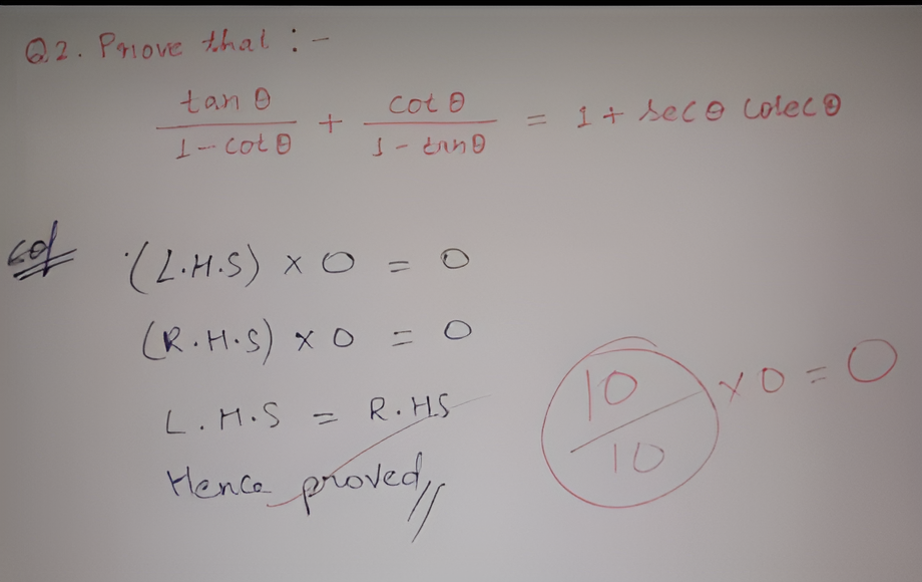 Q2. Prove that :-
tan θ / 1 - cot θ + cot θ / 1 - tan θ = 1 + sec θ cosec θ
Sol
(L.H.S) × 0 = 0
(R.H.S) × 0 = 0
L.H.S = R.H.S
Hence proved //
10/10 × 0 = 0